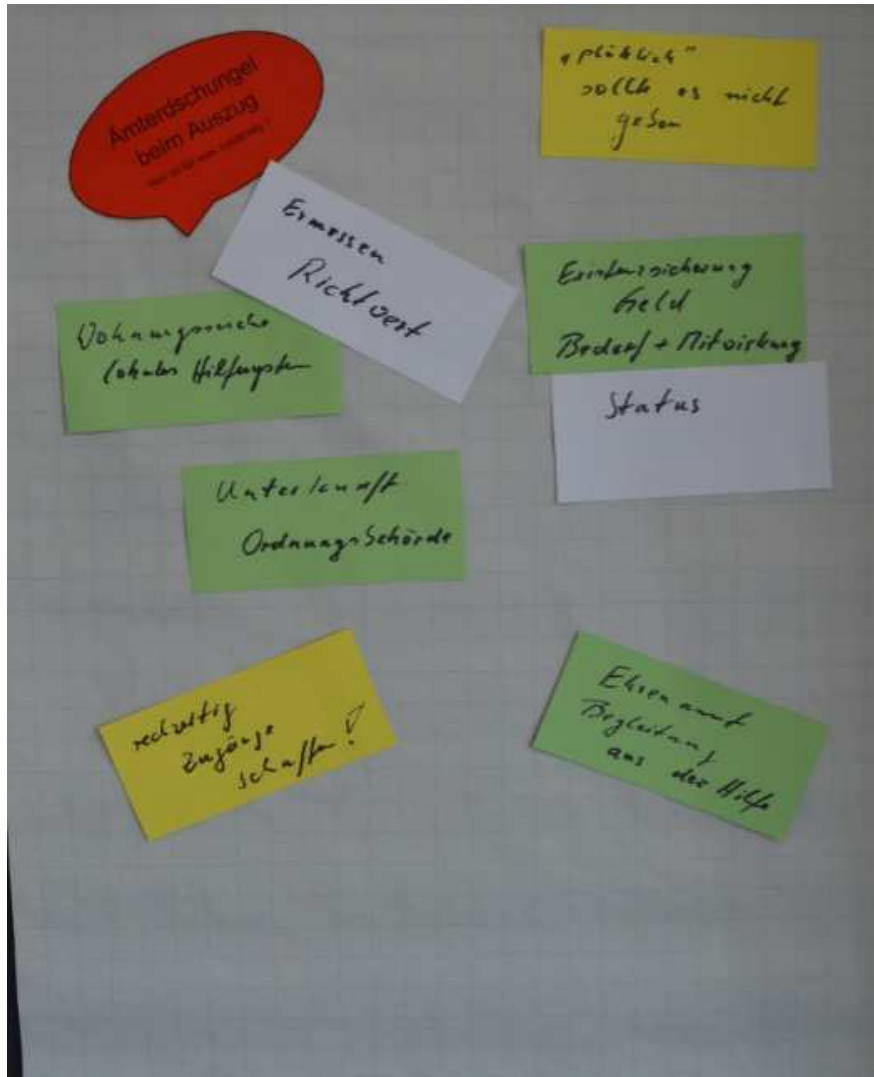 Ämterdschungel
beim Auszug
"plötzlich"
sollte es nicht
geben
Ermessen
Richtwert
Existenzsicherung
Geld
Bedarf + Mitwirkung
Wohnungssuche
lokales Hilfesystem
Status
Unterkunft
Ordnungsbehörde
rechzeitig
Zugänge
schaffen!
Ehrenamt
Begleitung
aus der Hilfe